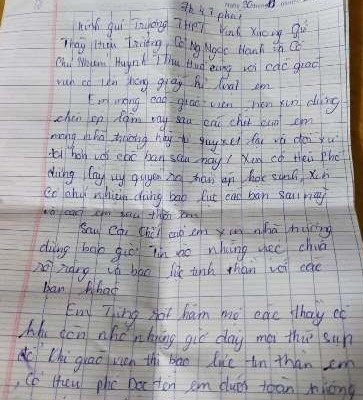 7h 47 phút
Kính gửi Trường THPT Vĩnh Xương Gửi
Thầy Hiệu Trưởng, Cô Ng Ngọc Hạnh và Cô
Chủ Nhiệm Huỳnh Thu Huệ cùng với các giáo
viên có tên trong giấy kỉ luật em
Em mong các giáo viên, hiện xin đừng
chèn ép lắm nay sau cái chết của em
mong nhà trường hãy tự quy xét lại và đối xử
tốt hơn với các bạn sau này! Xin cô hiệu phó
đừng lấy uy quyền ra trấn áp học sinh, Xin
cô chủ nhiệm đừng bạo lực các bạn sau này
và các em sau
Sau cái chết của em xin nhà trường
đừng bao giờ tin vào những việc chưa
rõ ràng và bạo lực tinh thần với các
bạn khác
Em Từng rất hâm mộ các thầy cô
khi còn nhỏ nhưng giờ đây mọi thứ sụp
đổ khi giáo viên thì bạo lực tin thần em
, cô hiệu phó Đọc tên em dưới toàn trường